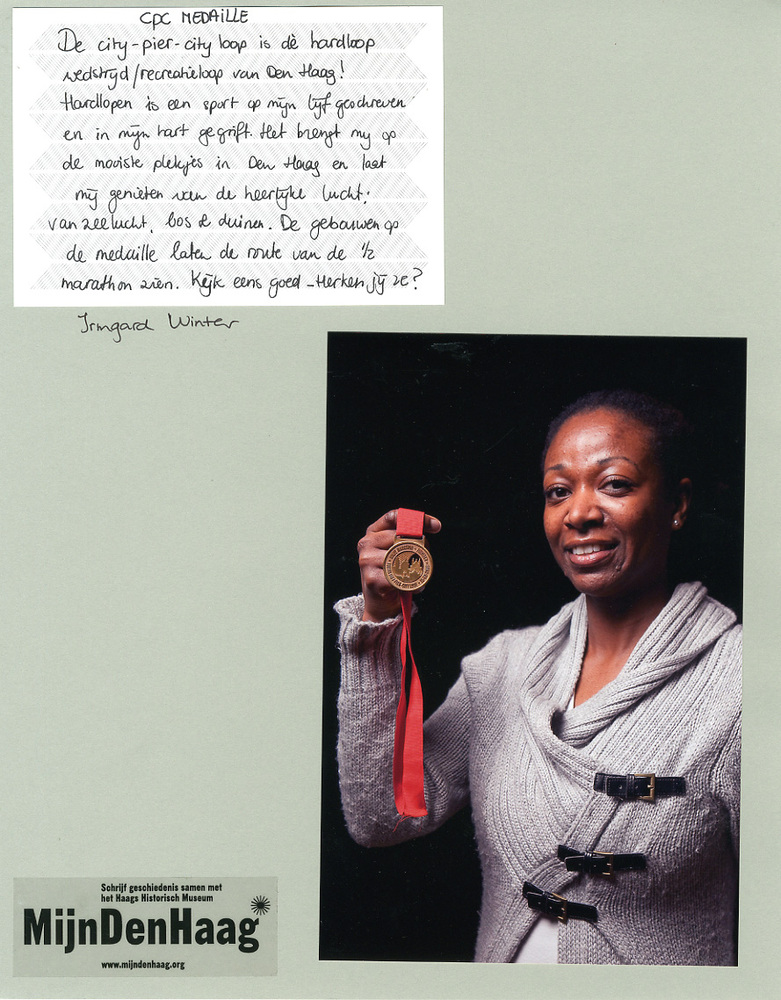 CPC MEDAILLE
De city-pier-city loop is dè hardloop
wedstrijd/recreatieloop van Den Haag!
Hardlopen is een sport op mijn lijf geschreven
en in mijn hart gegrift. Het brengt mij op
de mooiste plekjes in Den Haag en laat
mij genieten van de heerlijke lucht:
van zeelucht, bos & duinen. De gebouwen op
de medaille laten de route van de ½
marathon zien. Kijk eens goed - Herken jij ze?
Irmgard Winter
Schrijf geschiedenis samen met
het Haags Historisch Museum
MijnDenHaag
www.mijndenhaag.org